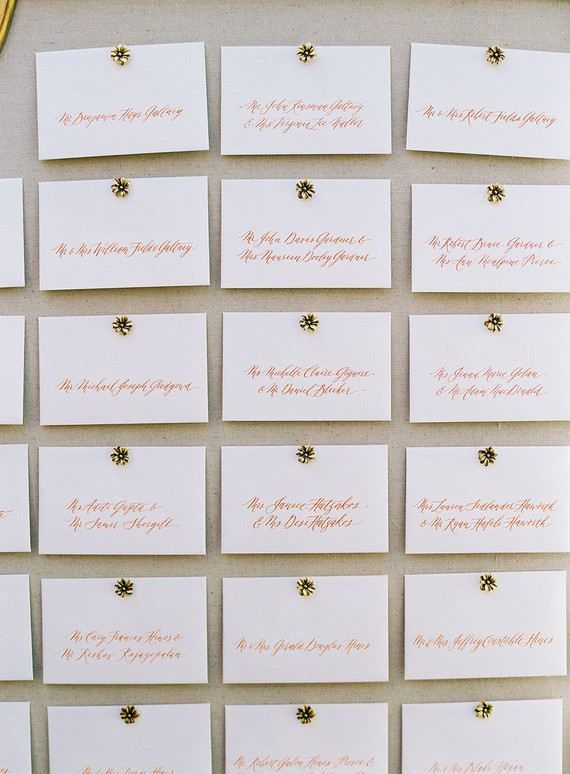 Mr Benjamin Hays Galtney
Mr John Kinsman Galtney
& Mrs Virginia Lee Waller
Mr & Mrs Robert Fields Galtney
Mr & Mrs William Fields Galtney
Mr John Davis Gardner &
Mrs Maureen Dooley Gardner
Mr Robert Bruce Gardner &
Ms Ann Mcalpine Pierce
Mr Michael Joseph
Ms Michelle Claire Giguere
& Mr Daniel Blecker
Ms Jenna Marie Golan
& Mr Adam MacDonald
Ms Aditi Gupta &
Mr Samer Shergill
Mrs Janice Hatzakos
& Ms Desi Hatzakos
Mrs Lauren Haworth
& Mr Ryan Haworth
Ms Cary Frances Hines &
Mr Keshav Rajagopalan
Mr & Mrs Gerald Douglas Hines
Mr & Mrs Jeffrey Constable Hines
Hines
Mr Robert Galen Hines Pierce &
Mr & Mrs Blake Hogan